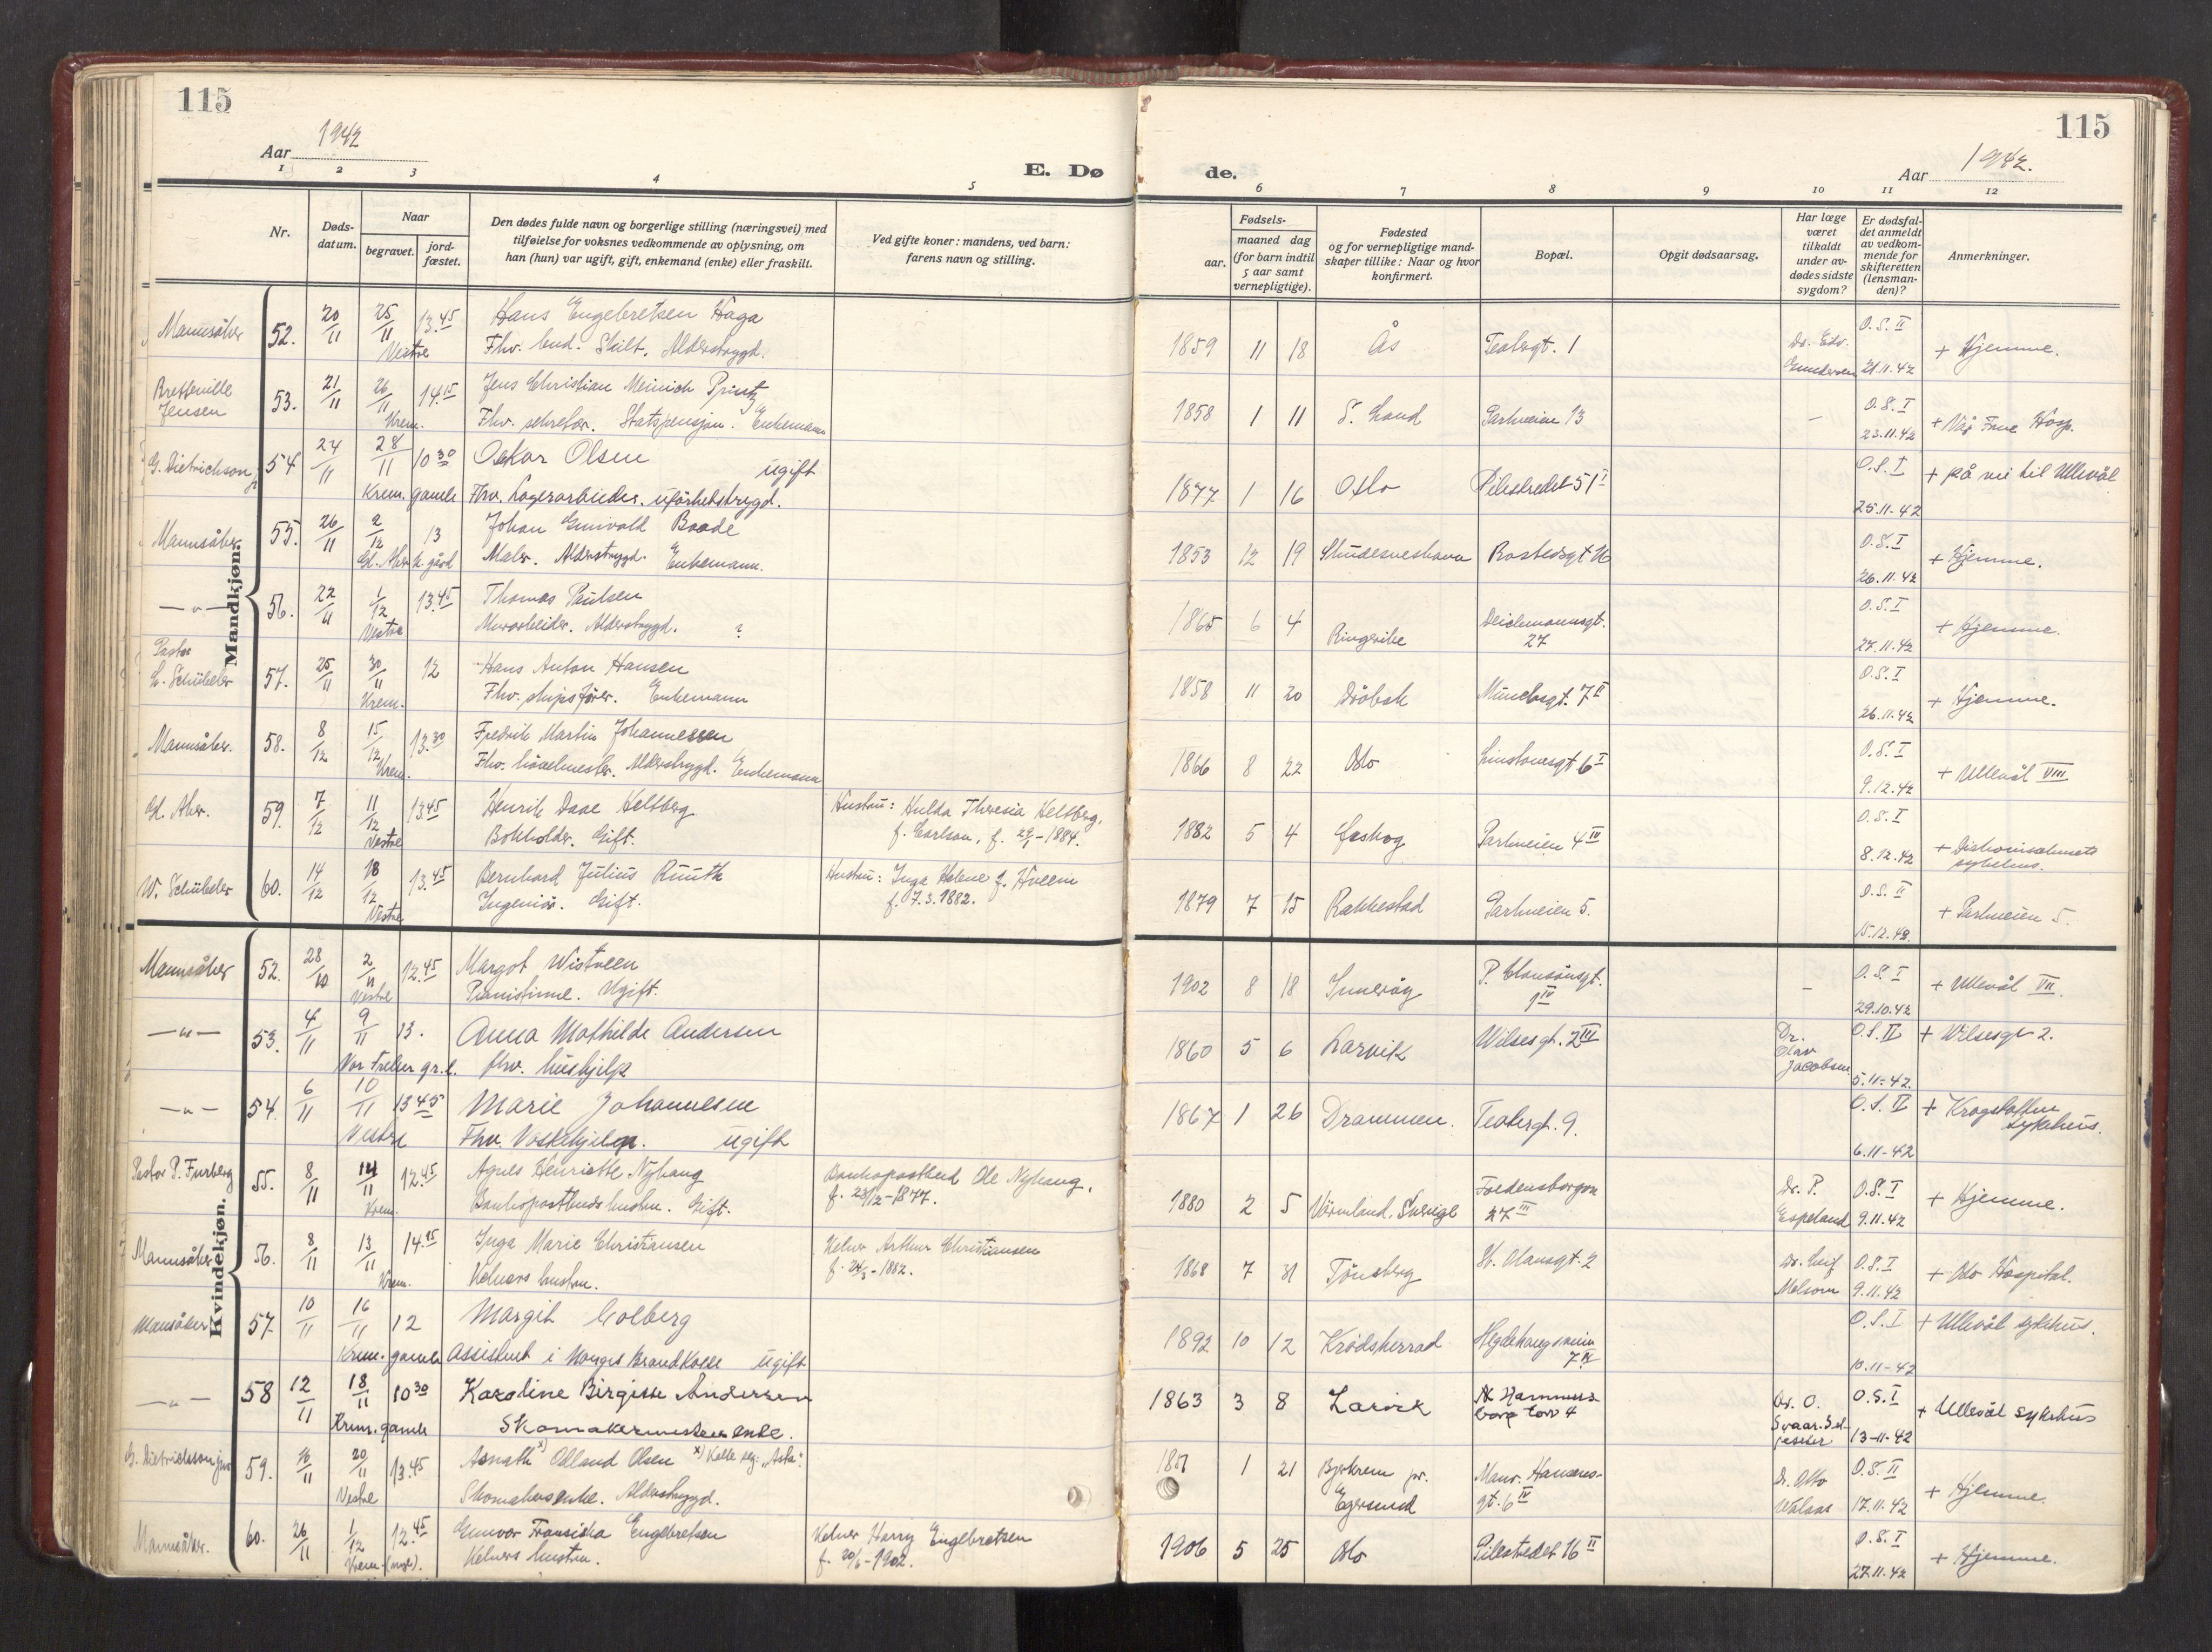 115
Aar 1942
E. Dø
1 2 3 4 5
Nr.
Døds-
datum.
Naar
begravet.
jord-
fæstet.
Den dødes fulde navn og borgerlige stilling (næringsvei) med
tilføielse for voksnes vedkommende av oplysning, om
han (hun) var ugift, gift, enkemand (enke) eller fraskilt.
Ved gifte koner: mandens, ved barn:
farens navn og stilling.
Mandkjøn.
Mannsåker 52. 20/11 25/11 13.45 Hans Engebretsen Haga
Vestre Fhv. bud. Skilt. Alderstrygd.
Bretteville 53. 21/11 26/11 14.15 Jens Christian Meinich Printz
Jensen Krem. Fhv. sekretær. Statspensjon. Enkemann
G. Dietrichson jr 54 24/11 28/11 10 30 Oskar Olsen ugift
Krem. gamle Fhv. Lagerarbeider. uførhetstrygd.
Mannsåker 55. 26/11 2/12 13 Johan Enevald Baade
Gl. Aker k. gård Maler. Alderstrygd. Enkemann.
— " — 56. 22/11 1/12 13.45 Thomas Paulsen
Vestre Murarbeider. Alderstrygd. ?
Pastor
Schübeler 57. 25/11 30/11 12 Hans Anton Hansen
Krem. Fhv. skipsfører. Enkemann
Mannsåker. 58. 8/12 15/12 13.30 Fredrik Martin Johannessen
Krem. Fhv. høvelmester. Alderstrygd. Enkemann
Gl. Aker. 59. 7/12 11/12 13.45 Henrik Daae Helsberg Hustru: Hulda Theresia Helsberg,
Vestre Bokholder. Gift. f. Carlson, f. 29/1-1884.
W. Schübeler 60. 14/12 18/12 13.45 Bernhard Julius Ruuth Hustru: Inga Helene f. Hveem
Vestre Ingeniør. Gift. f. 7.3.1882.
Kvindekjøn.
Mannsåker 52. 28/10 2/11 12.45 Margot Wistveen
Vestre Pianistinne. Ugift.
— " — 53. 4/11 9/11 13. Anna Mathilde Andersen
Vor Frelsers gr.l. fhv. hushjelp
— " — 54. 6/11 10/11 13 45 Marie Johannesen
Vestre Fhv. Vaskehjelp. ugift
Pastor P. Furberg 55. 8/11 14/11 12.45 Agnes Henriette Nyhaug Bankopostbud Ole Nyhaug,
Krem. Bankopostbuds hustru. Gift. f. 28/12-1877.
Mannsåker 56. 8/11 13/11 14.15 Inga Marie Christiansen Kelner Arthur Christiansen
Krem. Kelners hustru. f. 24/3-1882.
Mannsåker 57. 10/11 16/11 12 Margit Colberg
Krem. gamle Assistent i Norges Brandkasse ugift
— " — 58 12/11 18/11 10 30 Karoline Birgitte Andersen
Krem. gamle Skomakermesters enke.
G. Dietrichson jnr 59. 16/11 20/11 13.45 Asnath x) Olland Olsen x) Kalte seg: "Asta".
Vestre Skomakers enke. Alderstrygd.
Mannsåker. 60. 26/11 1/12 12.45 Gunvor Fransiska Engebretsen Kelner Harry Engebretsen
Krem. Kelners hustru. f. 20/6-1902.
115
Aar 1942.
de.
6 7 8 9 10 11 12
Fødsels-
aar.
maaned dag
(for barn indtil
5 aar samt
vernepligtige).
Fødested
og for vernepligtige mand-
skaper tillike: Naar og hvor
konfirmert.
Bopæl.
Opgit dødsaarsag.
Har læge
været
tilkaldt
under av-
dødes sidste
sygdom?
Er dødsfal-
det anmeldt
av vedkom-
mende for
skifteretten
(lensman-
den)?
Anmerkninger.
1859 11 18 Ås Teatergt. 1 Dr. Edv. Gundersen O.S. II 21.11.42 + Hjemme.
1858 1 11 S. Land Parkveien 13 — O.S. I 23.11.42 + Vår Frue Hosp.
1877 1 16 Oslo Pilestredet 51 I O.S. I 25.11-42 + på vei til Ullevål
1853 12 19 Skudesneshavn Rostedsgt 16 O.S. I 26.11.42 + Hjemme.
1865 6 4 Ringerike Deichmannsgt. 27 O.S. I 27.11.42 + Hjemme.
1858 11 20 Drøbak Munchsgt. 7 II O.S. I 26.11.42 + Hjemme.
1866 8 22 Oslo Linstowsgt 6 I O.S. I 9.12.42 + Ullevål VIII
1882 5 4 Eeskog Parkveien 4 III O.S. I 8.12.42 + Diakonissehusets sykehus.
1879 7 15 Rakkestad Parkveien 5. O.S. II 15.12.42. + Parkveien 5.
1902 8 18 Inderøy P. Clausønsgt. 1 IV — O.S. I 29.10.42 + Ullevål VII.
1860 5 6 Larvik Wilsesgt. 2 III Dr. Olav Jacobsen O.S. II 5.11-42. + Wilsesgt 2.
1867 1 26 Drammen. Teatergt. 9. O.S. II 6.11-42 + Krogstøtten Sykehus.
1880 2 5 Värmland, Sverige Fredensborgvn 27 III Dr. P. Espeland O.S. I 9.11.42 + Hjemme.
1868 7 31 Tønsberg St. Olavsgt. 2 Dr. Leif Melsom O.S. I 9.11.42 + Oslo Hospital.
1892 10 12 Krødsherrad Hegdehaugsveien 7 IV O.S. I 10.11-42 + Ullevål sykehus.
1863 3 8 Larvik Hammers-borg torv 4 Dr. O. Svaar-Seljesæter O.S. I 13-11-42 + Ullevål sykehus
1 21 Bjerkrem pr. Egersund Maur. Hansens-gt. 6 IV Dr. Otto Valaas O.S. II 17.11.42 + Hjemme.
1906 5 25 Oslo Pilestredet 16 II O.S. I 27.11.42 + Hjemme.